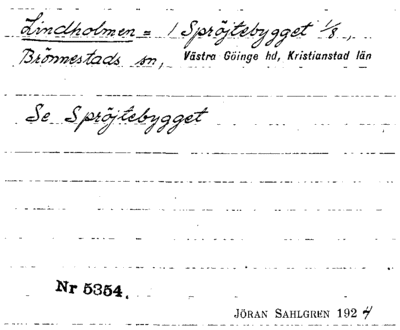 Lindholmen = / Spröjtebygget 1/8,
Brönnestads sn, Västra Göinge hd, Kristianstad län
Se Spröjtebygget
Nr 5354.
JÖRAN SAHLGREN 1924